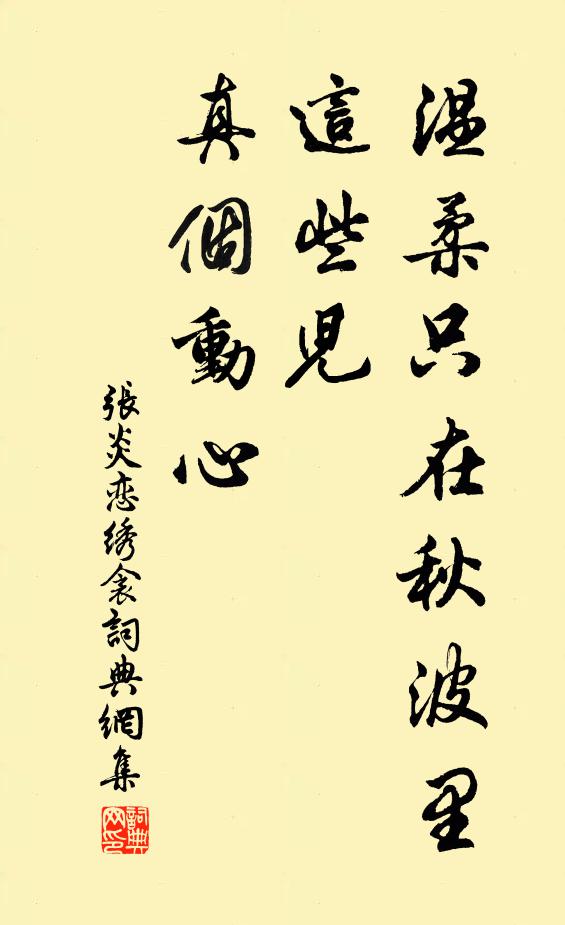 温柔只在秋波里
這些児
真個動心
張炎恋绣衾詞典網集
詞典网印